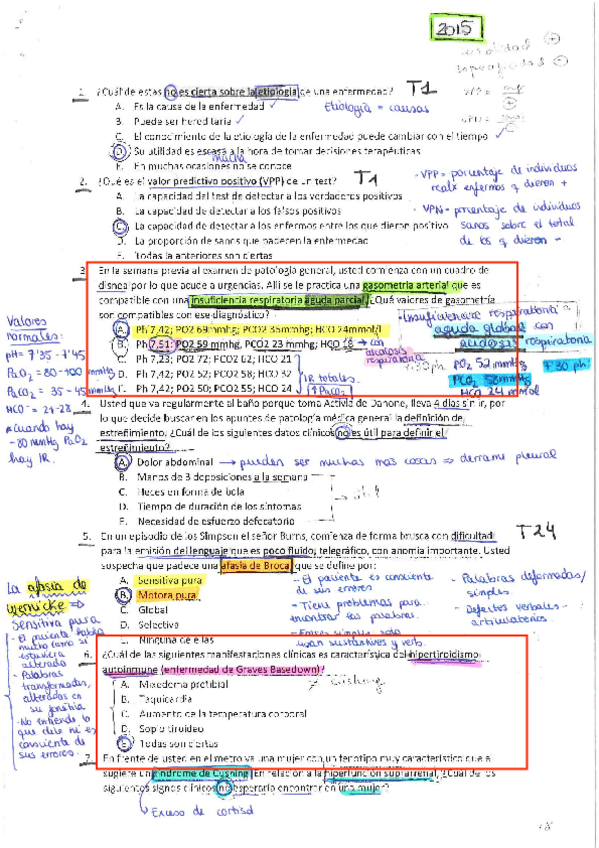 2015
1. ¿Cuál de estas no es cierta sobre la etiología de una enfermedad? T1
A. Es la causa de la enfermedad ✓
Etiología = causas
B. Puede ser hereditaria ✓
C. El conocimiento de la etiología de la enfermedad puede cambiar con el tiempo ✓
D. Su utilidad es escasa a la hora de tomar decisiones terapéuticas
mucha
E. En muchas ocasiones no se conoce
2. ¿Qué es el valor predictivo positivo (VPP) de un test? T1
A. La capacidad del test de detectar a los verdaderos positivos
B. La capacidad de detectar a los falsos positivos
C. La capacidad de detectar a los enfermos entre los que dieron positivo
D. La proporción de sanos que padecen la enfermedad
E. Todas la anteriores son ciertas
- VPP = porcentaje de individuos
real× enfermos q dieron +
- VPN = porcentaje de individuos
sanos sobre el total
de los q dieron -
3. En la semana previa al examen de patología general, usted comienza con un cuadro de
disnea por lo que acude a urgencias. Allí se le practica una gasometría arterial que es
compatible con una insuficiencia respiratoria aguda parcial. ¿Qué valores de gasometría
son compatibles con ese diagnóstico?
A. Ph 7,42; PO2 69mmhg; PCO2 35mmhg; HCO 24mmhg
B. Ph 7,51; PO2 59 mmhg; PCO2 23 mmhg; HCO 18 → con
alcalosis
respiratoria
C. Ph 7,23; PO2 72; PCO2 62; HCO 21
D. Ph 7,42; PO2 58; PCO2 68; HCO 32
E. Ph 7,42; PO2 50; PCO2 55; HCO 24
IR totales
↑PaCO2
Insuficiencia respiratoria
aguda global con
acidosis respiratoria
PO2 52 mmHg
7'30 ph
PCO2 58mmHg
HCO 24 mmol
Valores
normales:
pH = 7'35 - 7'45
PaO2 = 80-100 mmHg
PaCO2 = 35-45 mmHg
HCO⁻ = 21-28
* cuando hay
-80 mmHg PaO2
hay IR.
4. Usted que va regularmente al baño porque toma Activia de Danone, lleva 4 días sin ir, por
lo que decide buscar en los apuntes de patología médica general la definición de
estreñimiento. ¿Cuál de los siguientes datos clínicos no es útil para definir el
estreñimiento?
A. Dolor abdominal → pueden ser muchas mas cosas ⇒ derrame pleural
B. Menos de 3 deposiciones a la semana
C. Heces en forma de bola
D. Tiempo de duración de los síntomas
E. Necesidad de esfuerzo defecatorio
5. En un episodio de los Simpson el señor Burns, comienza de forma brusca con dificultad
T24
para la emisión del lenguaje que es poco fluido, telegráfico, con anomia importante. Usted
sospecha que padece una afasia de Broca, que se define por:
A. Sensitiva pura
B. Motora pura
C. Global
D. Selectiva
E. Ninguna de ellas
- El paciente es consciente
de sus errores
- Tiene problemas para
encontrar las palabras.
- Frases simples solo
usan sustantivos y verb.
- Palabras deformadas/
simples
- Defectos verbales-
articulatorios
La afasia de
wernicke ⇒
sensitiva pura
- El paciente habla
mucho como si
estuviera
alterado
- Palabras
transformadas,
alteradas en
su fonética
- No entiende lo
que dice ni es
consciente de
sus errores.
6. ¿Cuál de las siguientes manifestaciones clínicas es característica del hipertiroidismo
autoinmune (enfermedad de Graves Basedown)?
A. Mixedema pretibial
≠ Cushing
B. Taquicardia
C. Aumento de la temperatura corporal
D. Soplo tiroideo
E. Todas son ciertas
7. En frente de usted en el metro va una mujer con un fenotipo muy característico que a
sugiere un síndrome de Cushing. En relación a la hiperfunción suprarrenal, ¿Cuál de los
siguientes signos clínicos no esperaría encontrar en una mujer?
↳ Exceso de cortisol